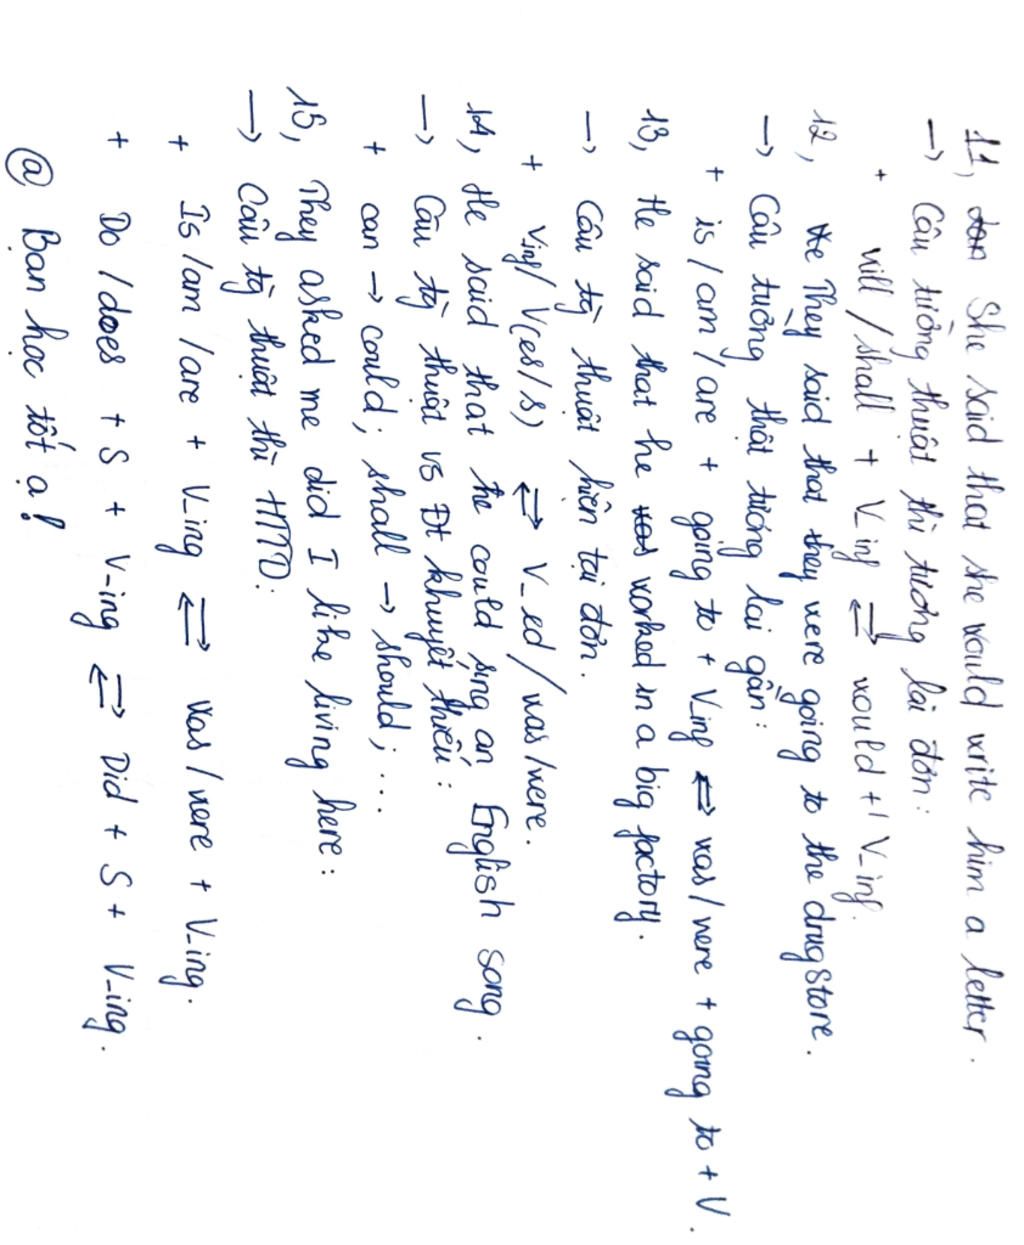 11, She said that she would write him a letter.
→ Câu tường thuật thì tương lai đơn:
+ will / shall + V_inf ⇄ would + V_inf.
12, They said that they were going to the drugstore.
→ Câu tường thật tương lai gần:
+ is / am / are + going to + Vinf ⇔ was / were + going to + V.
13, He said that he worked in a big factory.
→ Câu tg thuật hiện tại đơn.
+ Vinf/ V(es/s) ⇄ V_ed / was/were.
14, He said that he could sing an English song.
→ Câu tg thuật vs Đt khuyết thiếu:
+ can → could; shall → should; ...
15, They asked me did I like living here:
→ Câu tg thuật thì HTTD:
+ Is /am /are + V_ing ⇄ was / were + V_ing.
+ Do / does + S + V_ing ⇄ Did + S + V_ing.
@ Bạn học tốt ạ!